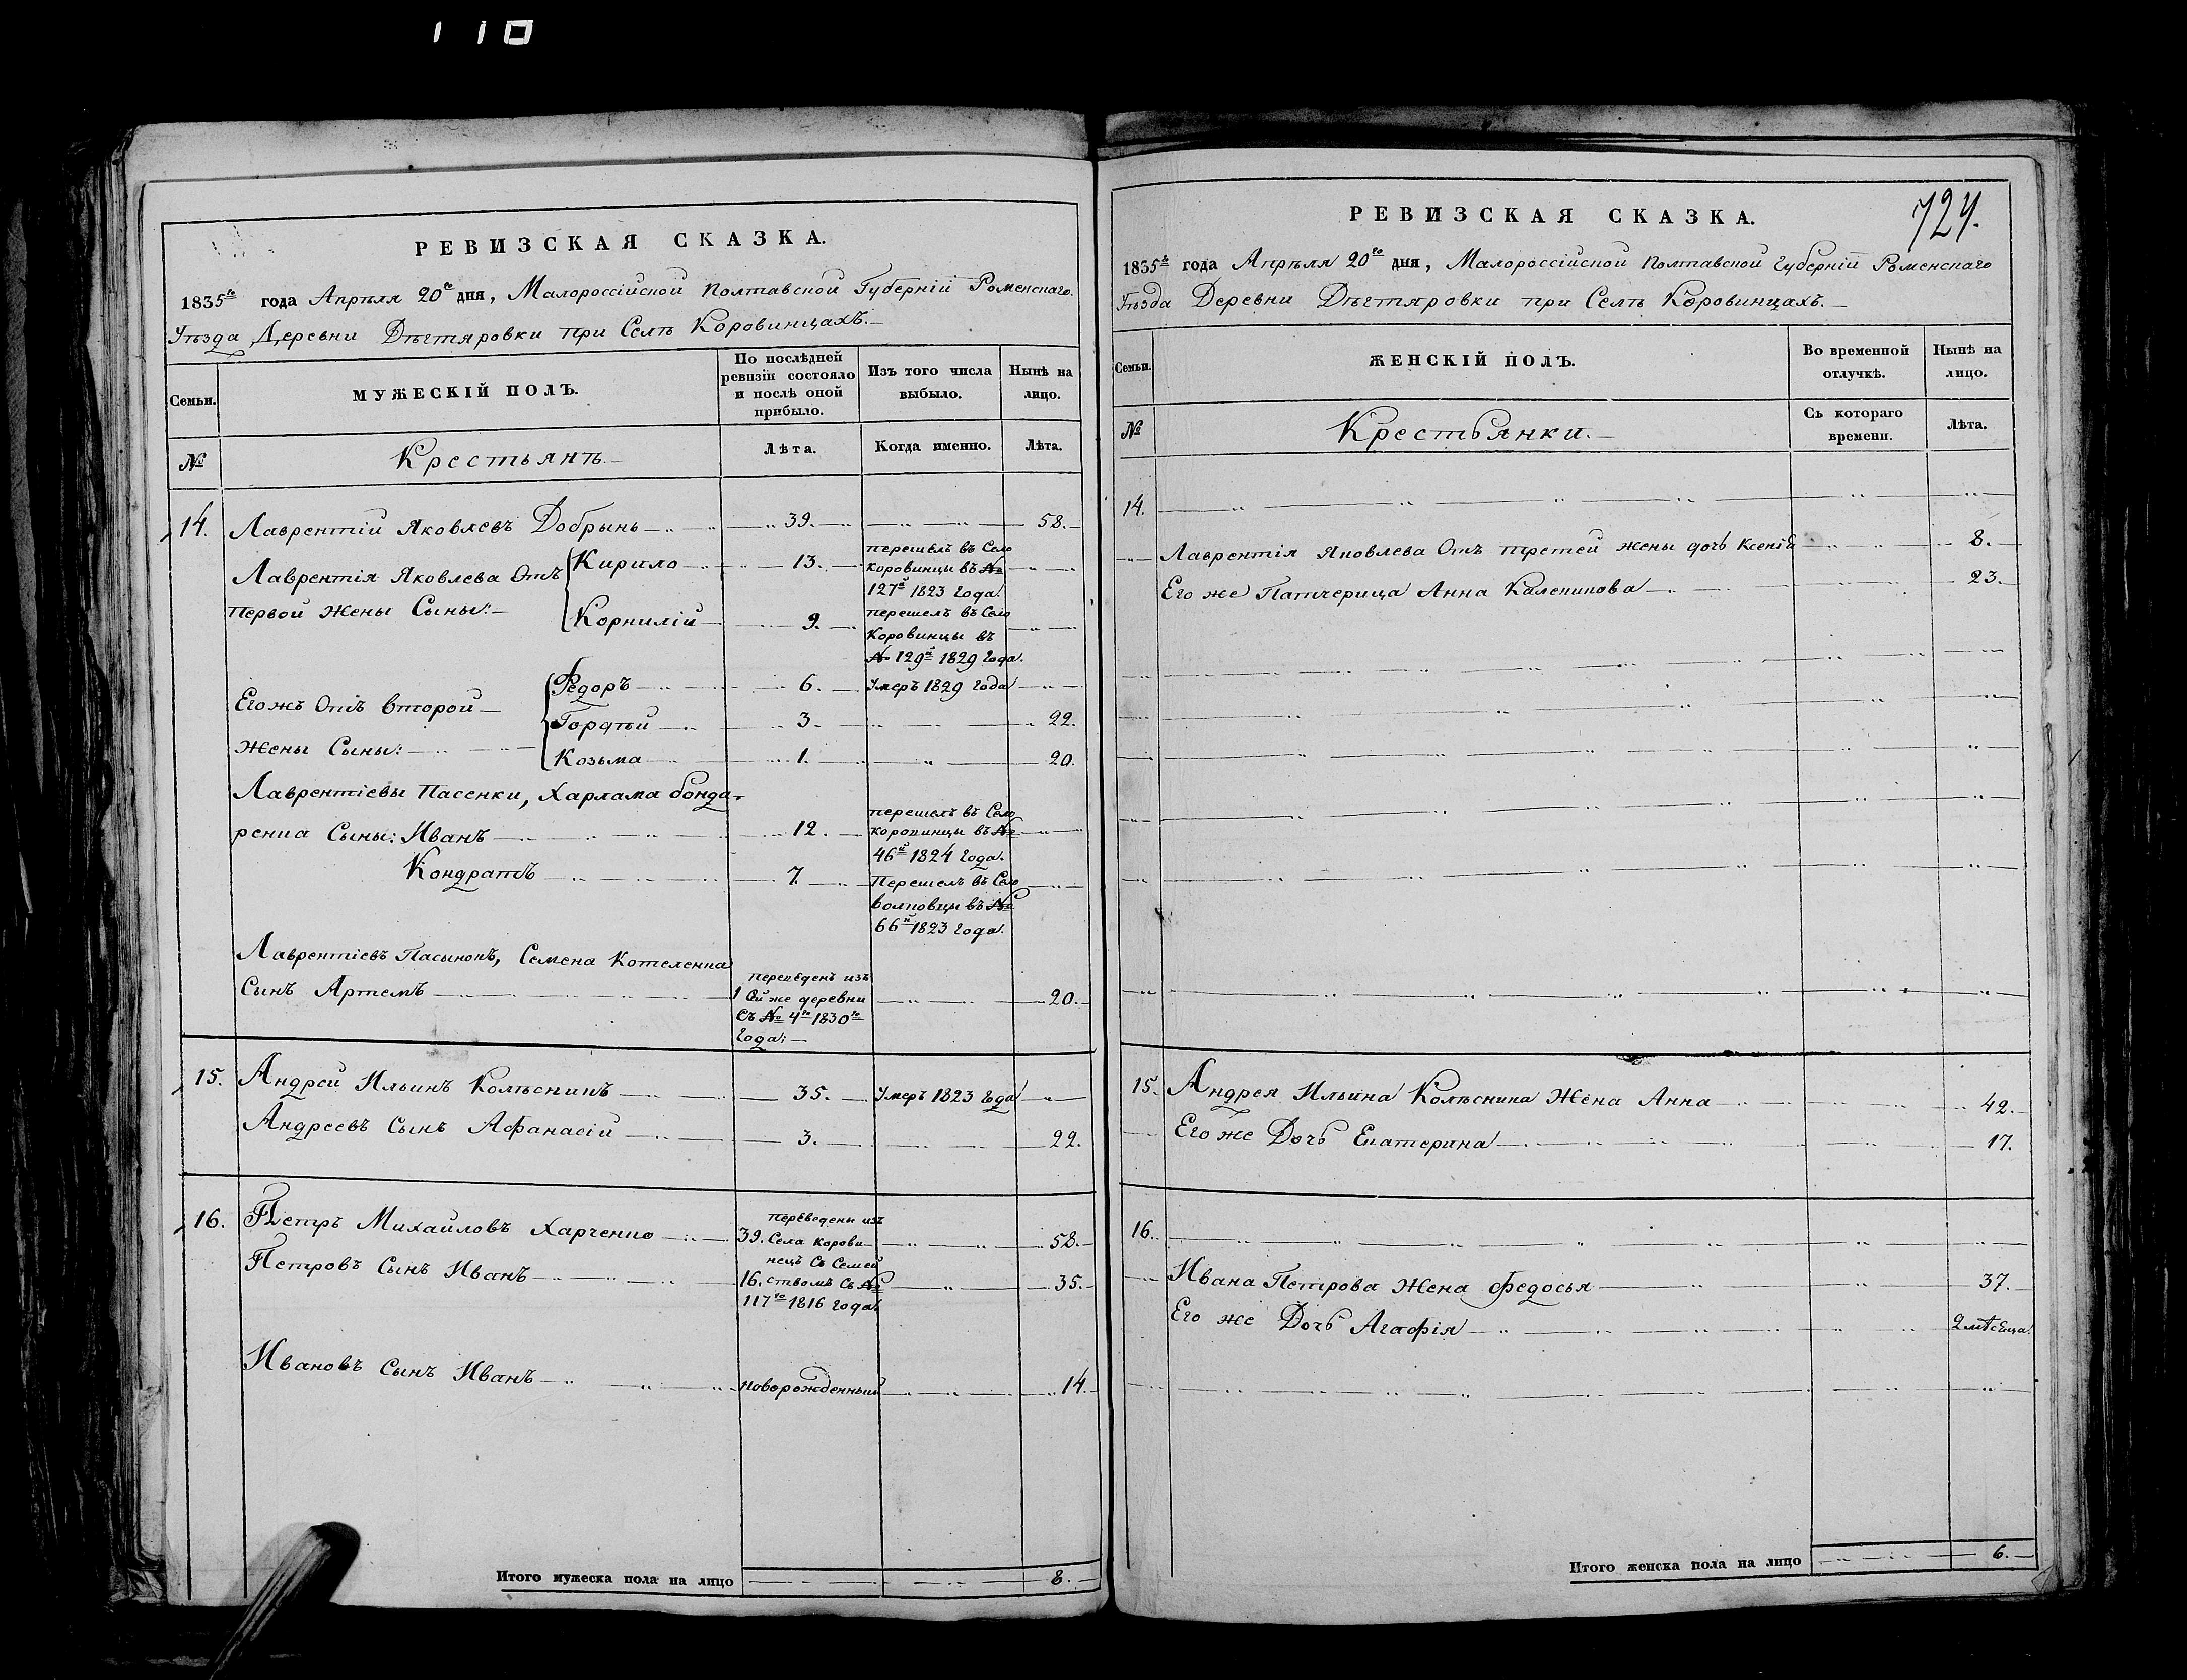 110
РЕВИЗСКАЯ СКАЗКА.
1835го года Апрѣля 20го дня, Малороссійской Полтавской Губерніи Роменскаго
Уѣзда Деревни Дѣгтяровки при Селѣ Коровинцахъ.
Семьи.
МУЖЕСКІЙ ПОЛЪ.
По послѣдней ревизіи состояло и послѣ оной прибыло.
Изъ того числа выбыло.
Нынѣ на лицо.
№
Крестьянъ.
Лѣта.
Когда именно.
Лѣта.
14. Лаврентій Яковлевъ Добрынь 39. 58.
Лаврентія Яковлева Отъ Кирило 13. перешелъ въ Село Коровинцы въ № 127й 1823 года.
первой Жены Сыны: Корнилій 9. перешелъ въ Село Коровинцы въ № 129й 1829 года.
Егожъ Отъ второй Федоръ 6. Умеръ 1829 года
Гордѣй 3. 22.
Жены Сыны: Козьма 1. 20.
Лаврентіевы Пасенки, Харлама Бонда-
ренка Сыны: Иванъ 12. перешелъ въ Село Коровинцы въ № 46й 1824 года.
Кондратъ 7. Перешелъ въ Село Волковцы въ № 66й 1823 года.
Лаврентіевъ Пасынокъ, Семена Котеленка
Сынъ Артемъ 1 переведенъ изъ Сей же деревни Съ № 4го 1830го года; 20.
15. Андрей Ильинъ Колѣсникъ 35. Умеръ 1823 года
Андреевъ Сынъ Афанасій 3. 22.
16. Петръ Михайловъ Харченко 39. переведены изъ Села Корови- 58.
Петровъ Сынъ Иванъ 16. нецъ Съ Семей ствомъ Съ № 117го 1816 года. 35.
Ивановъ Сынъ Иванъ новорожденный 14.
Итого мужеска пола на лицо 8.
724.
РЕВИЗСКАЯ СКАЗКА.
1835го года Апрѣля 20го дня, Малороссійской Полтавской Губерніи Роменскаго
Уѣзда Деревни Дѣгтяровки при Селѣ Коровинцахъ.
Семьи.
ЖЕНСКІЙ ПОЛЪ.
Во временной отлучкѣ.
Нынѣ на лицо.
№
Крестьянки.
Съ котораго времени.
Лѣта.
14.
Лаврентія Яковлева Отъ третей жены дочь Ксенія 8.
Его же Патчерица Анна Каленикова 23.
15. Андрея Ильина Колѣсника Жена Анна 42.
Его же Дочь Екатерина 17.
16.
Ивана Петрова Жена Федосья 37.
Его же Дочь Агафія 2 мѣсеца.
Итого женска пола на лицо 6.